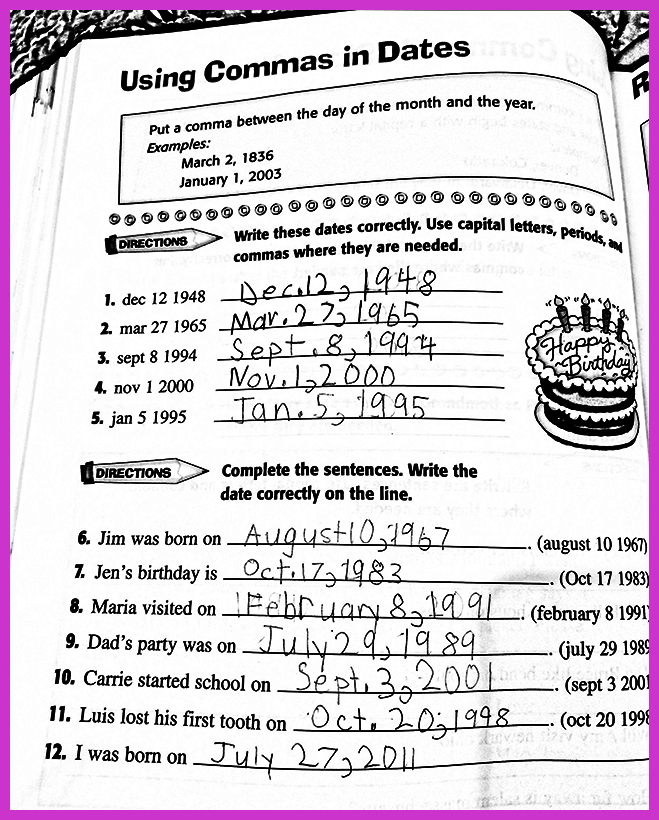 Using Commas in Dates
Put a comma between the day of the month and the year.
Examples:
March 2, 1836
January 1, 2003
DIRECTIONS Write these dates correctly. Use capital letters, periods, and
commas where they are needed.
1. dec 12 1948 Dec.12, 1948
2. mar 27 1965 Mar.27, 1965
3. sept 8 1994 Sept.8, 1994
4. nov 1 2000 Nov.1, 2000
5. jan 5 1995 Jan.5, 1995
Happy
Birthday
DIRECTIONS Complete the sentences. Write the
date correctly on the line.
6. Jim was born on August 10, 1967. (august 10 1967)
7. Jen's birthday is Oct.17, 1983. (Oct 17 1983)
8. Maria visited on February 8, 1991. (february 8 1991)
9. Dad's party was on July 29, 1989. (july 29 1989
10. Carrie started school on Sept.3, 2001. (sept 3 2001
11. Luis lost his first tooth on Oct. 20, 1998. (oct 20 1998
12. I was born on July 27, 2011